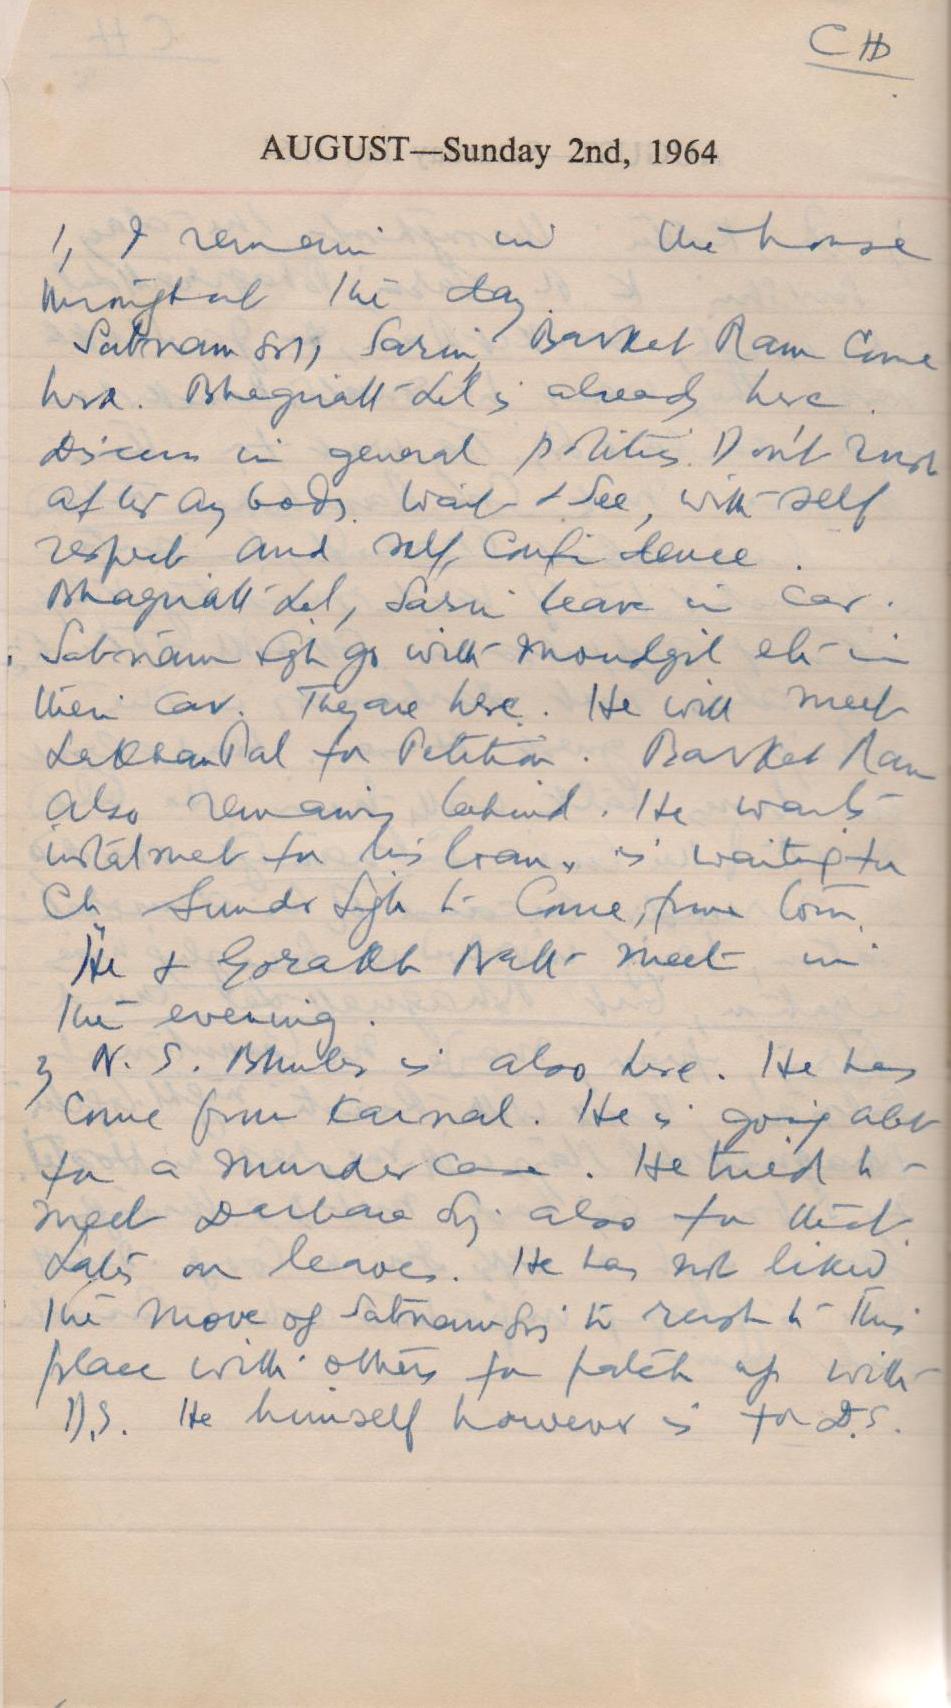 CH
AUGUST—Sunday 2nd, 1964
1, I remain in the house
throughout the day.
Satnam Sgh, Sarin, Barket Ram come
here. Bhagwatt Lal is already here.
Discuss in general politics. Don't rush
after any body. Wait & See, with self
respect and self confidence.
Bhagwatt Lal, Sarin leave in car.
Satnam Sgh go with Moudgil etc in
their car. They are here. He will meet
LakhanPal for Petition. Barket Ram
also remains behind. He wants
instalmet for his loan, is waiting for
Ch Sunder Sigh to come from
He & Gorakh Nath meet in
the evening.
2, N. S. Bhuler is also here. He has
come from Karnal. He is going abt
for a murder case. He tried to
meet Darbara Sg. also for that.
Later on leaves. He has not liked
the move of Satnam Sgh to rush to this
place with others for patch up with
D.S. He himself however is for D.S.